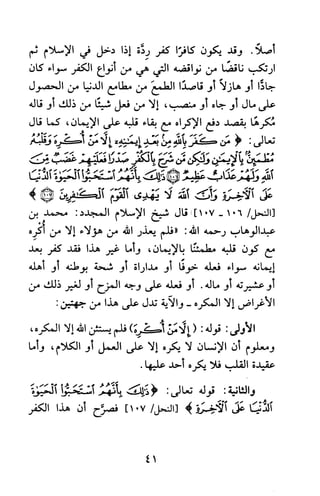 أصلاً. وقد يكون كافرًا كفر رِدَّة إذا دخل في الإسلام ثم
ارتكب ناقضًا من نواقضه التي هي من أنواع الكفر سواء كان
جادًّا أو هازلاً أو قاصدًا الطمعَ من مطامع الدنيا من الحصول
على مال أو جاه أو منصب، إلا من فعل شيئًا من ذلك أو قاله
مُكرهًا بقصد دفع الإكراه مع بقاء قلبه على الإيمان، كما قال
تعالى: ﴿ مَن كَفَرَ بِاللَّهِ مِنْ بَعْدِ إِيمَانِهِ إِلَّا مَنْ أُكْرِهَ وَقَلْبُهُ
مُطْمَئِنٌّ بِالْإِيمَانِ وَلَٰكِن مَّن شَرَحَ بِالْكُفْرِ صَدْرًا فَعَلَيْهِمْ غَضَبٌ مِّنَ
اللَّهِ وَلَهُمْ عَذَابٌ عَظِيمٌ ۝١٠٦ ذَٰلِكَ بِأَنَّهُمُ اسْتَحَبُّوا الْحَيَوٰةَ الدُّنْيَا
عَلَى الْآخِرَةِ وَأَنَّ اللَّهَ لَا يَهْدِي الْقَوْمَ الْكَافِرِينَ ۝١٠٧ ﴾
[النحل/ ١٠٦ - ١٠٧] قال شيخ الإسلام المجدد: محمد بن
عبدالوهاب رحمه الله: «فلم يعذر الله من هؤلاء إلا من أُكْرِه
مع كون قلبه مطمئنًا بالإيمان، وأما غير هذا فقد كفر بعد
إيمانه سواء فعله خوفًا أو مداراة أو شحة بوطنه أو أهله
أو عشيرته أو ماله. أو فعله على وجه المزح أو لغير ذلك من
الأغراض إلا المكره ـ والآية تدل على هذا من جهتين:
الأولى: قوله: ﴿ إِلَّا مَنْ أُكْرِهَ ﴾ فلم يستثن الله إلا المكره،
ومعلوم أن الإنسان لا يكره إلا على العمل أو الكلام، وأما
عقيدة القلب فلا يكره أحد عليها.
والثانية: قوله تعالى: ﴿ ذَٰلِكَ بِأَنَّهُمُ اسْتَحَبُّوا الْحَيَوٰةَ
الدُّنْيَا عَلَى الْآخِرَةِ ﴾ [النحل/ ١٠٧] فصرَّح أن هذا الكفر
٤١